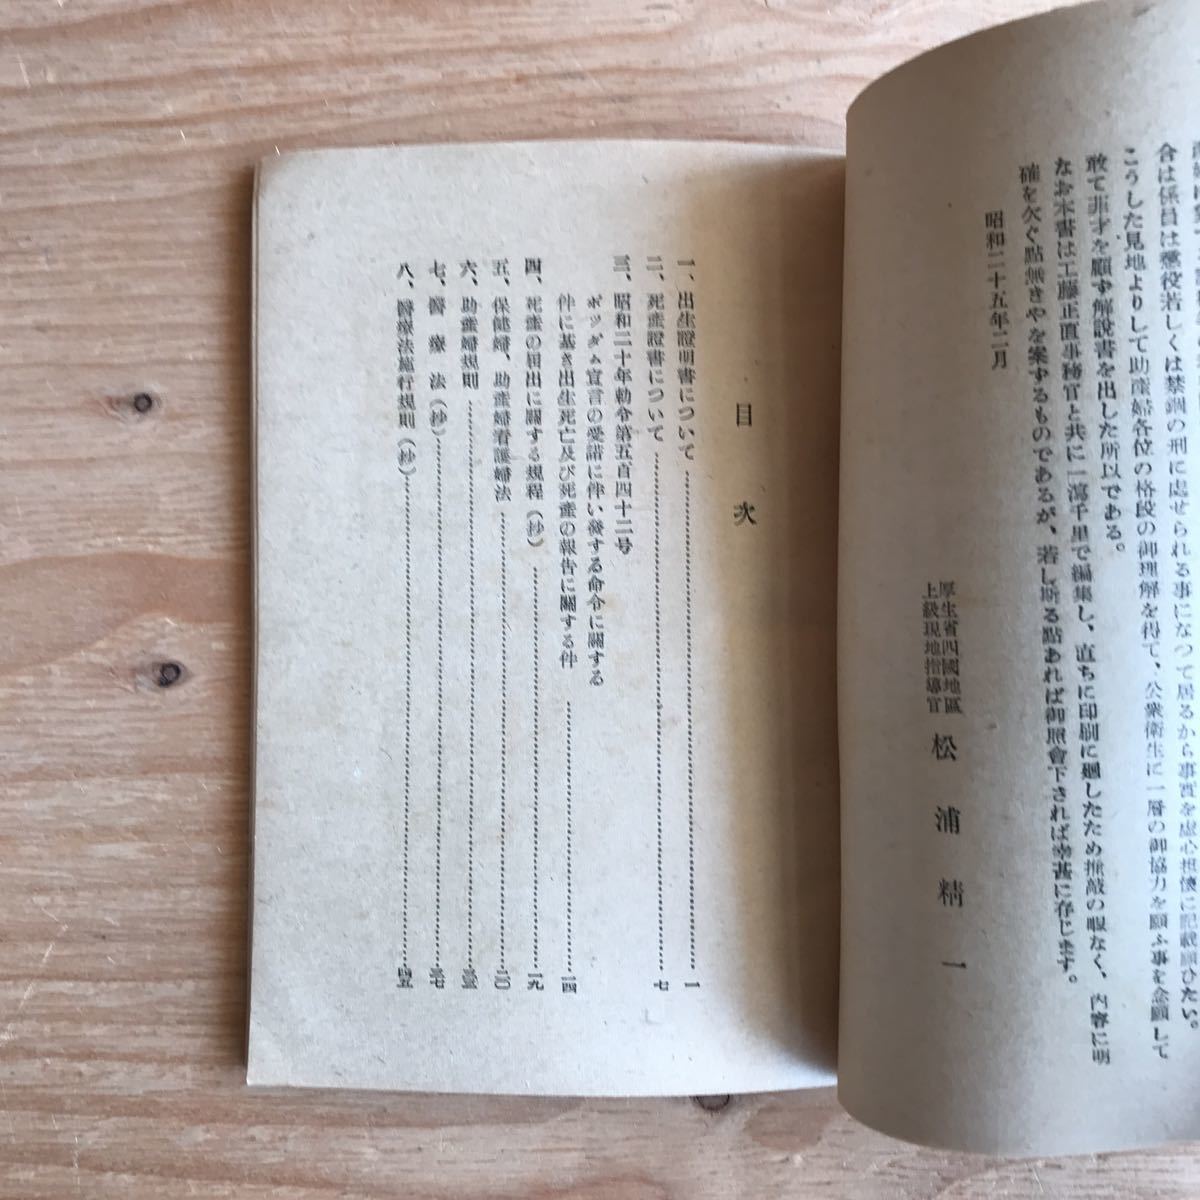 合は係員は懲役若しくは禁錮の刑に處せられる事になつて居るから事西を虚心坦懐に記載願ひたい。
こうした見地よりして助産婦各位の格段の御理解を得て、公衆衛生に一層の御協力を願ふ事を念願して
敢て菲才を顧ず解説書を出した所以である。
なお本書は工藤正直事務官と共に一瀉千里で編集し、直ちに印刷に廻したため推敲の暇なく、内容に明
確を欠ぐ點無きやを案ずるものであるが、若し斯る點あれば御照會下されば幸甚に存じます。
昭和二十五年二月
厚生省四國地區
上級現地指導官
松浦精一
目次
一、出生證明書について……一
二、死産證書について……七
三、昭和二十年勅令第五百四十二号
ポツダム宣言の受諾に伴い發する命令に關する
件に基き出生死亡及び死産の報告に關する件……一四
四、死産の届出に關する規程(抄)……一九
五、保健婦、助産婦看護婦法……二〇
六、助産婦規則……三三
七、醫療法(抄)……三七
八、醫療法施行規則(抄)……四五